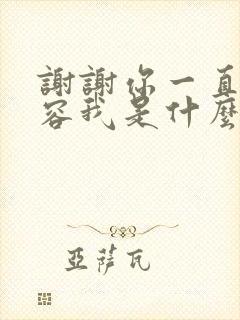 謝謝你一直
容我是什麼
亞薩瓦